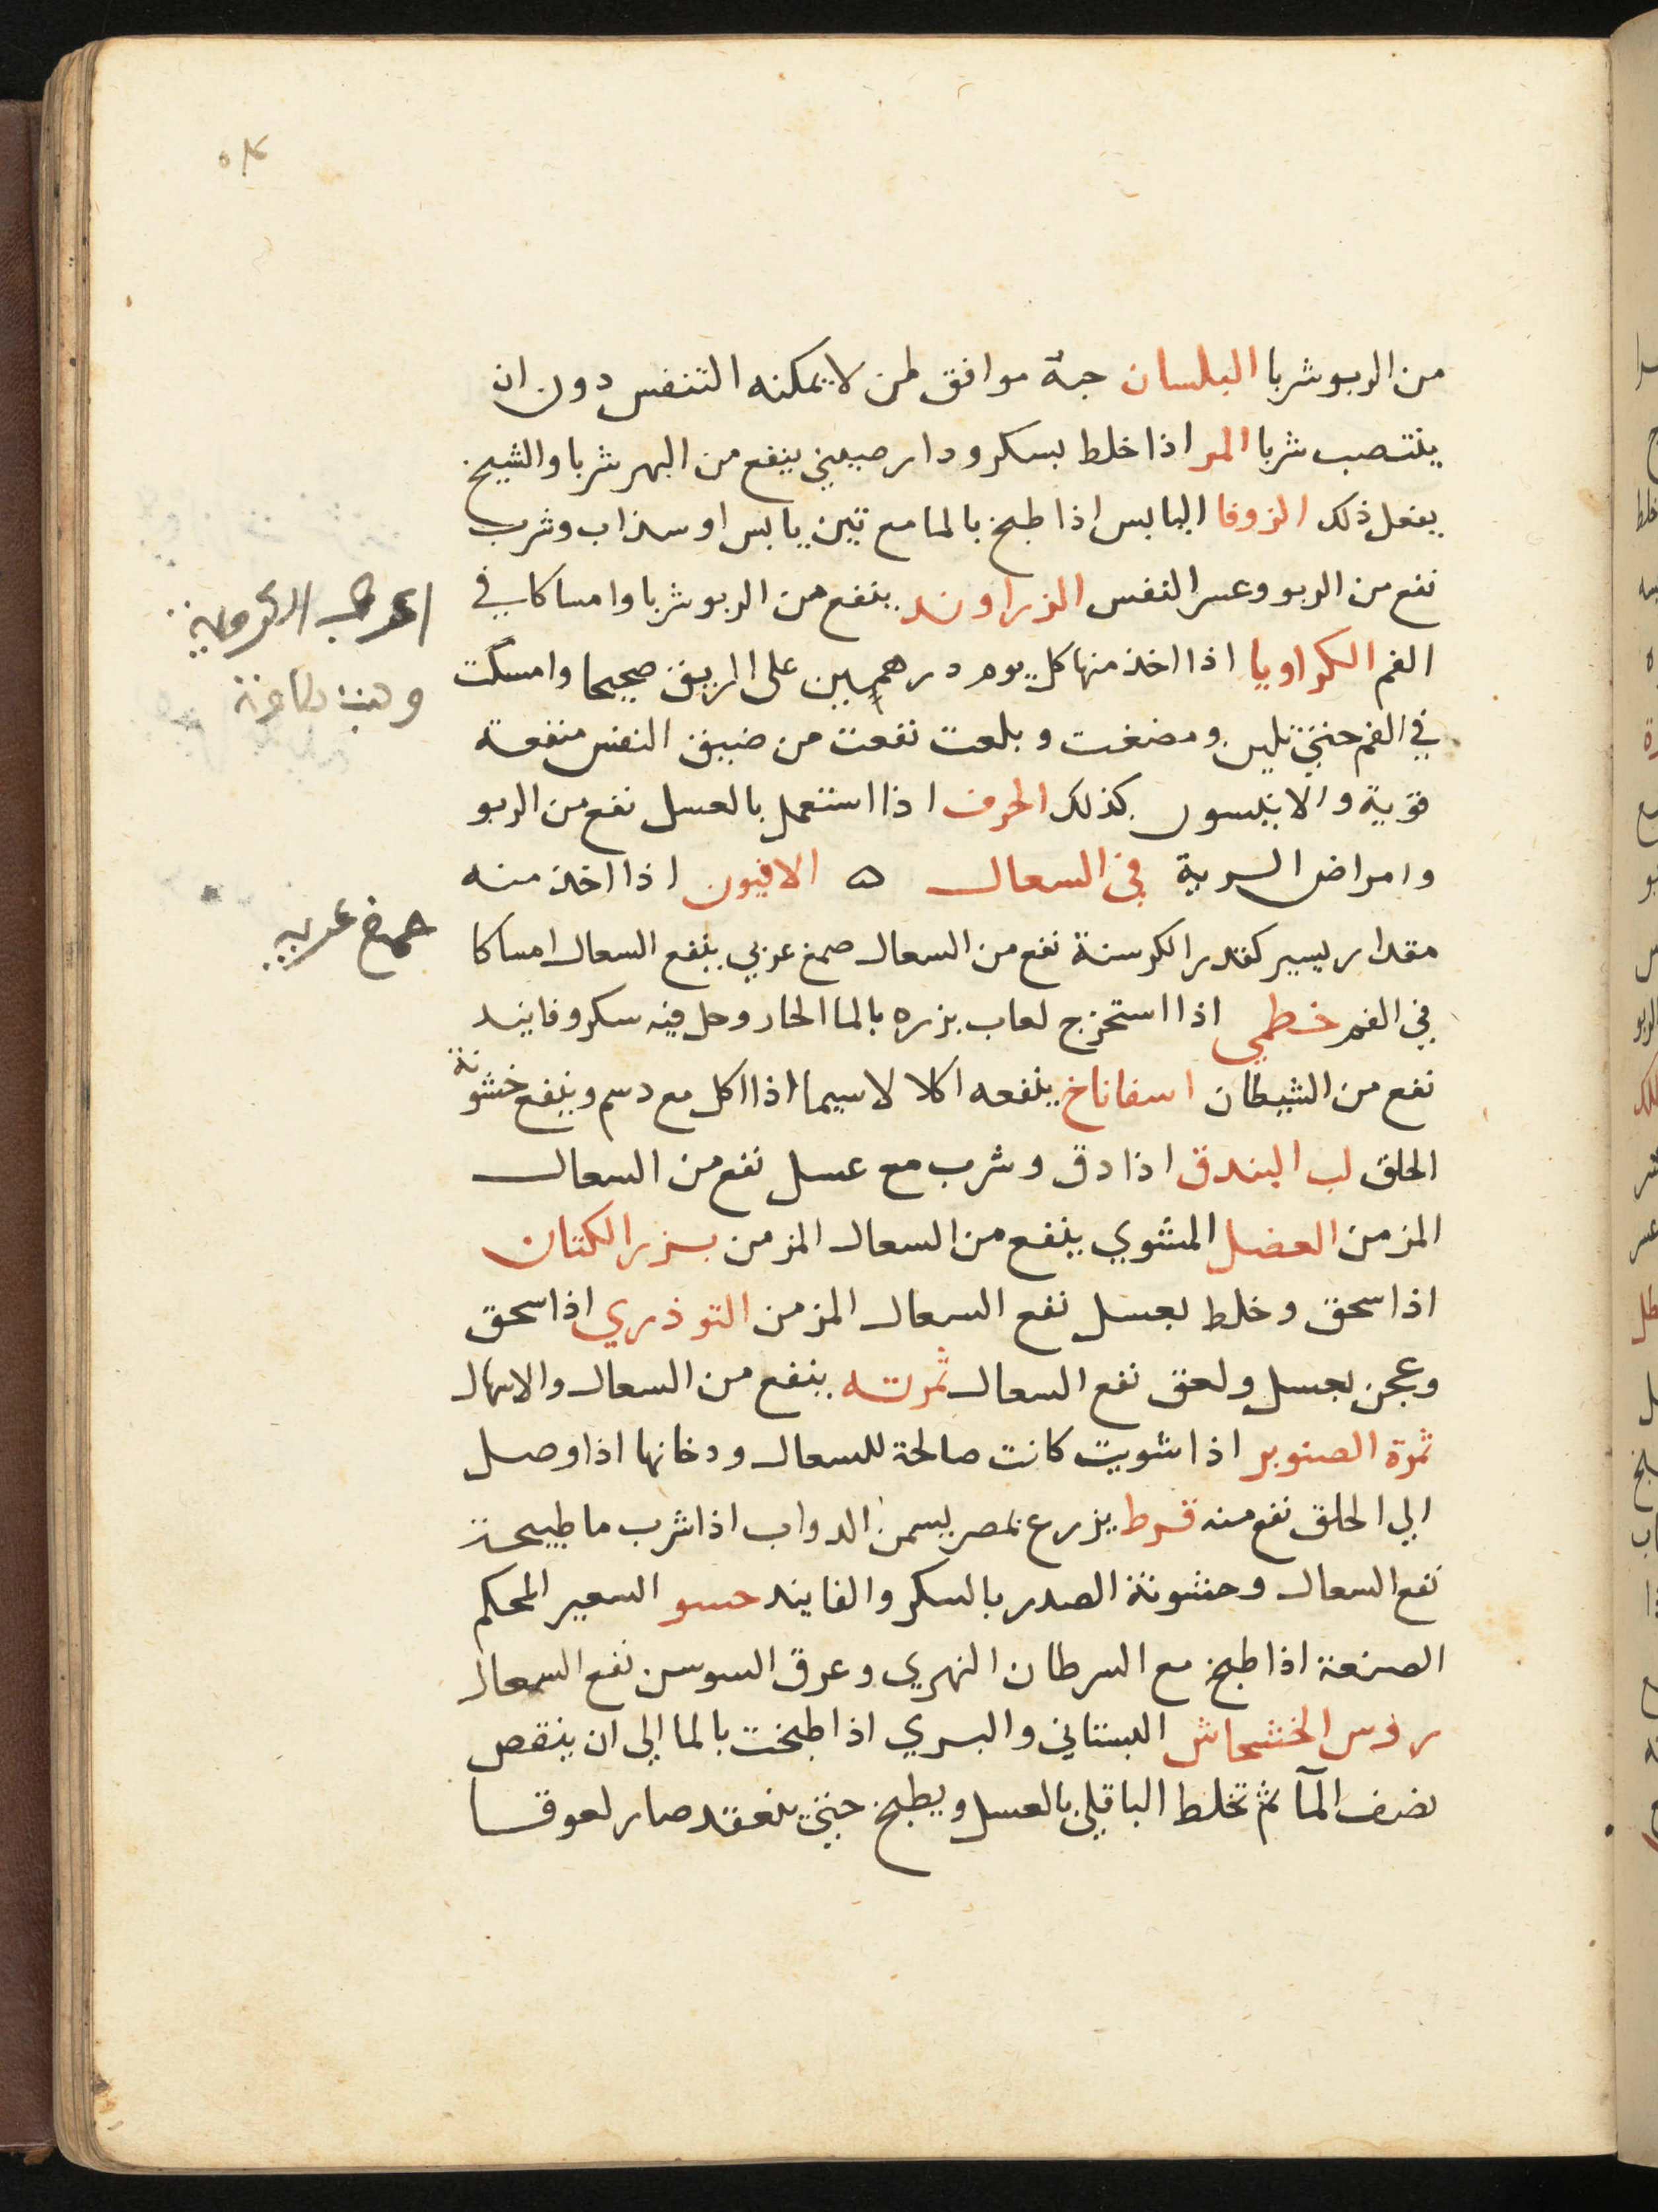 من الربو شربا البلسان حبة موافق لمن لا يمكنه التنفس دون ان
ينتصب شربا المر اذا خلط بسكر ودار صيني ينفع من البهر شربا والشيح
يفعل ذلك الزوفا اليابس اذا طبخ بالما مع تين يابس او سذاب وشرب
نفع من الربو وعسر النفس الزراوند ينفع من الربو شربا وامساكا في
الفم الكراويا اذا اخذ منها كل يوم درهمين على الريق صحيحا وامسكت
في الفم حتي تلين ومضغت وبلعت نفعت من ضيق النفس منفعة
قوية والانيسون كذلك الحرف اذا استعمل بالعسل نفع من الربو
وامراض الرية في السعال ه الافيون اذا اخذ منه
مقدار يسير كقدر الكرسنة نفع من السعال صمغ عربي ينفع السعال امساكا
في الفم خطمي اذا استخرج لعاب بزره بالما الحار وحل فيه سكر وفانيد
نفع من الشيطان اسفاناخ ينفعه اكلا لا سيما اذا اكل مع دسم وينفع خشونة
الحلق لب البندق اذا دق وشرب مع عسل نفع من السعال
المزمن العضل المشوي ينفع من السعال المزمن بزر الكتان
اذا سحق وخلط بعسل نفع السعال المزمن التوذري اذا سحق
وعجن بعسل ولعق نفع السعال ثمرته ينفع من السعال والاسهال
ثمرة الصنوبر اذا شويت كانت صالحة للسعال ودخانها اذا وصل
الي الحلق نفع منه قرط يزرع بمصر يسمن الدواب اذا شرب ما طبيخه
نفع السعال وخشونة الصدر بالسكر والفانيد حسو السعير المحكم
الصنعة اذا طبخ مع السرطان النهري وعرق السوس نفع السعال
روس الخشخاش البستاني والبري اذا طبخت بالما الي ان ينقص
نصف المآ ثم تخلط الباقي بالعسل ويطبخ حتي ينعقد صار لعوقا
صمغ عربي